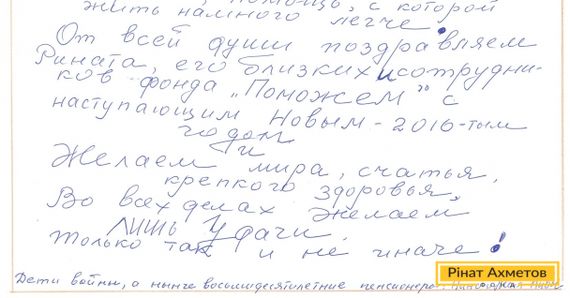 жить намного легче.
помощью, с которой
От всей души поздравляем
Рината, его близких и сотрудни-
ков фонда "Поможем" с
наступающим Новым - 2016-тым
годом
и
Желаем мира, счастья,
крепкого здоровья,
Во всех делах желаем,
лишь Удачи,
только так и не иначе!
Дети войны, а ныне восьмидесятилетние пенсионеры
Рінат Ахметов